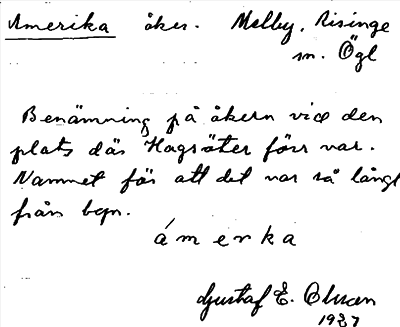 Amerika åker. Melby, Risinge
sn. Ögl
Benämning på åkern vid den
plats där Hagsäter förr var.
Namnet för att det var så långt
från byn.
ámerka
Gustaf E. Olsson
1927